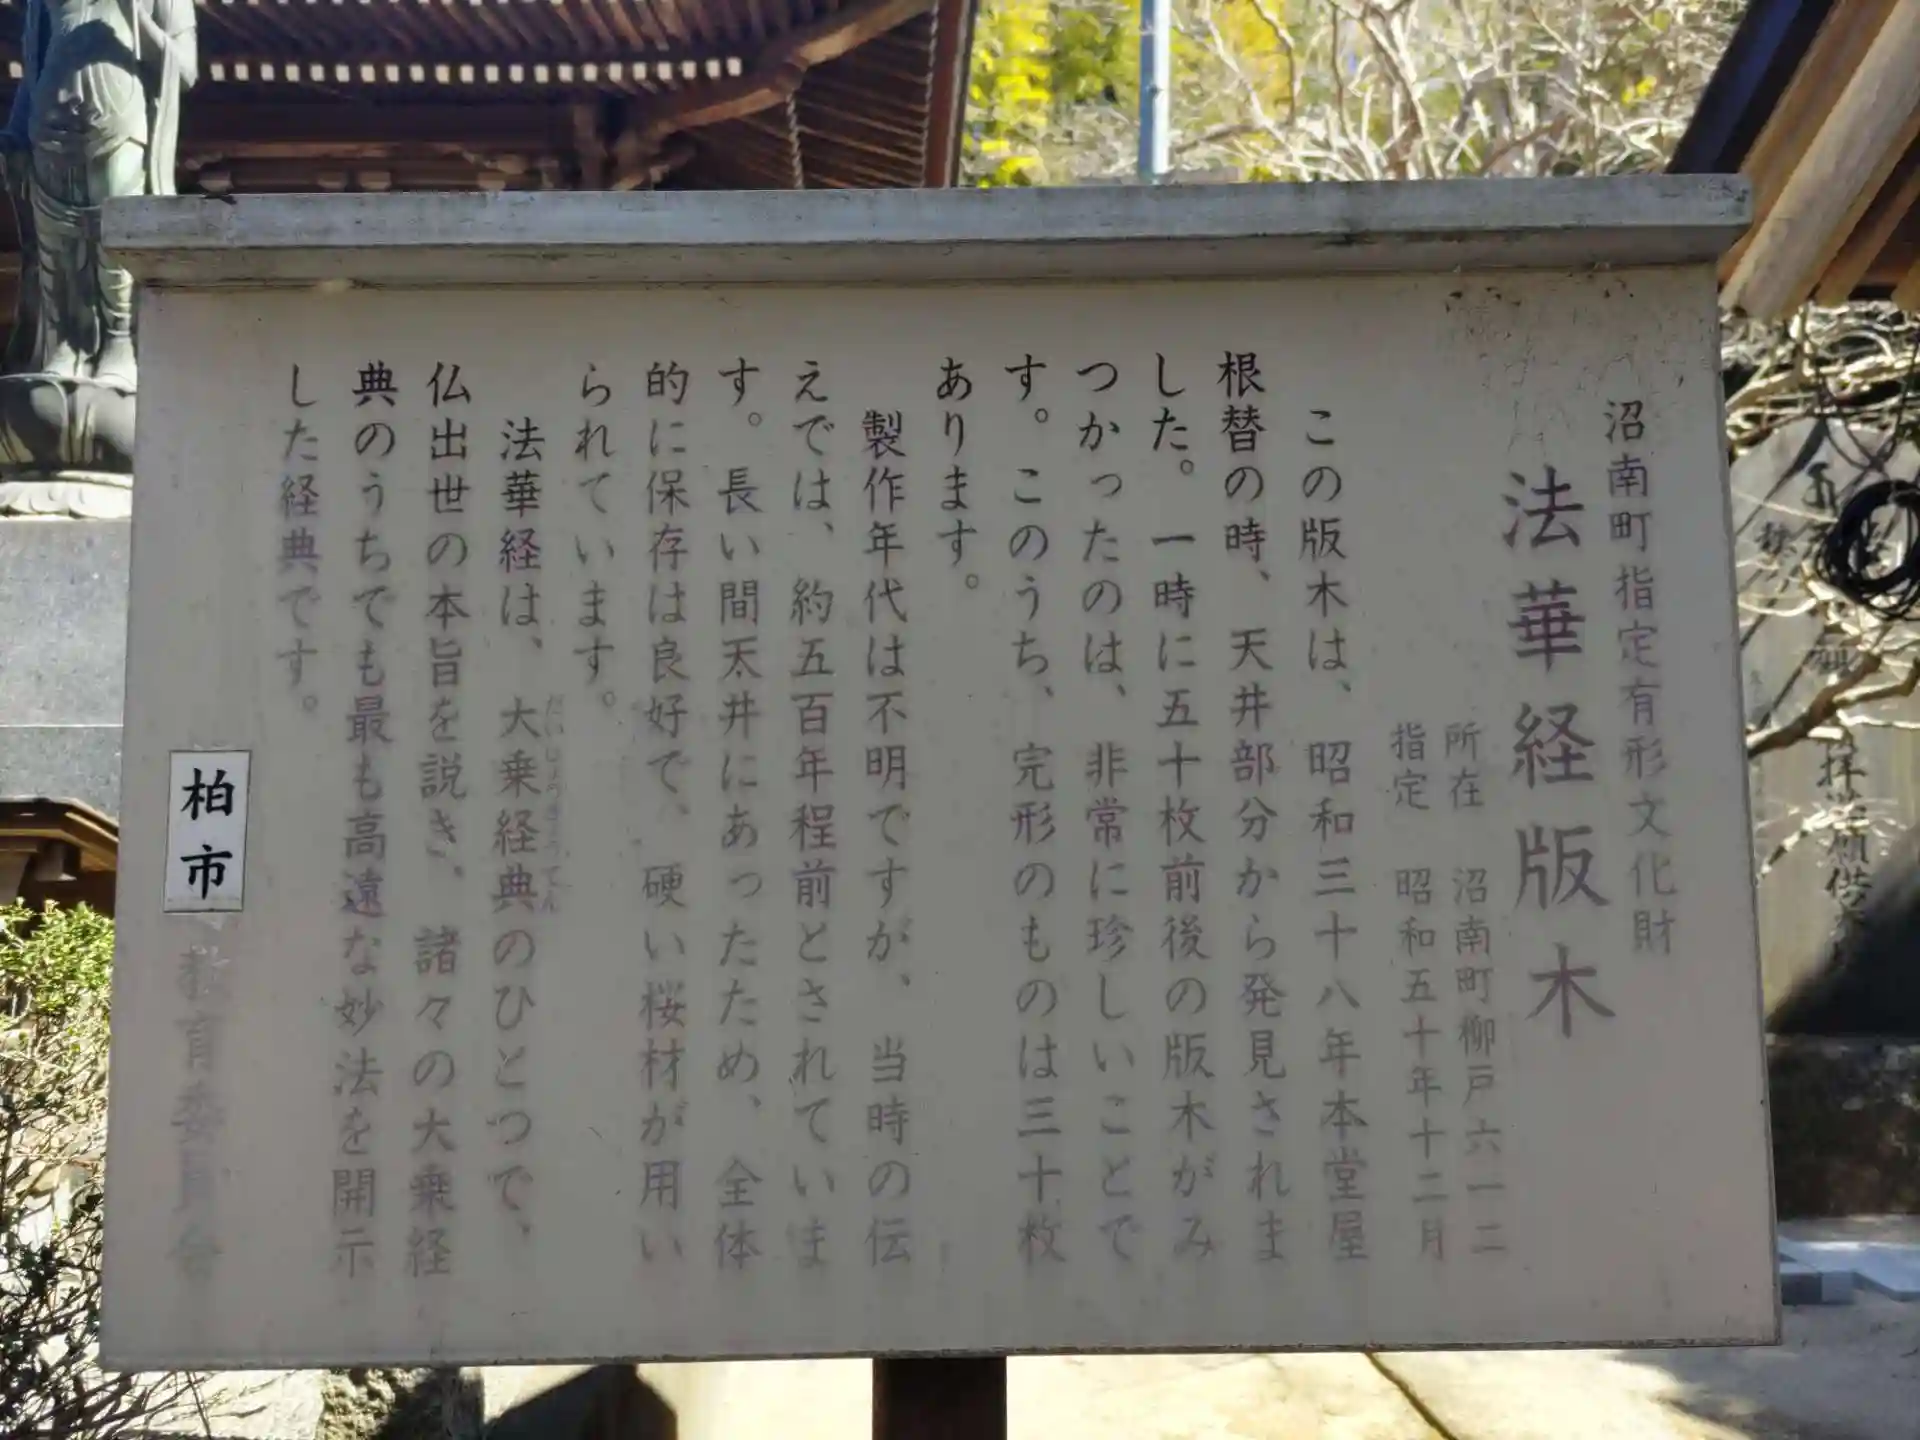 沼南町指定有形文化財
法華経版木
所在　沼南町柳戸六一二
指定　昭和五十年十二月
この版木は、昭和三十八年本堂屋
根替の時、天井部分から発見されま
した。一時に五十枚前後の版木がみ
つかったのは、非常に珍しいことで
す。このうち、完形のものは三十枚
あります。
製作年代は不明ですが、当時の伝
えでは、約五百年程前とされていま
す。長い間天井にあったため、全体
的に保存は良好で、硬い桜材が用い
られています。
法華経は、大乗経典のひとつで、
だいじょうきょうてん
仏出世の本旨を説き、諸々の大乗経
典のうちでも最も高遠な妙法を開示
した経典です。
柏市教育委員会